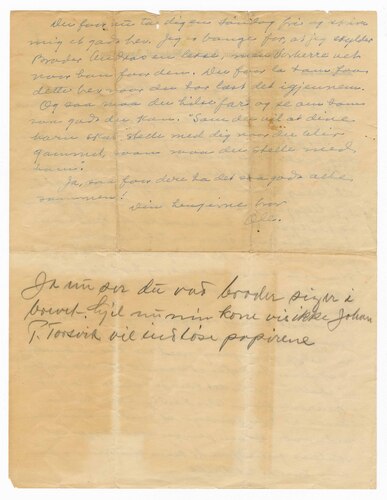 Du faar nu ta dig en söndag fris og skrive
mig et par brev. Jeg er banger for at jeg skylder
Broder Andreas en lekse, men Vorherre vet
naar han faar den. Du faar la ham
dette brev naar du har læst det igjennem.
Og saa maa du hilse far og se an ham
saa godt du kan. "Som du vil at dine
barn skal stelle med dig naar du blir
gammel, saan maa du stelle med
ham".
Ja, saa faar dere ha det saa godt alle
sammen!
Din hengivne bror
Ole.
Ja nu ser du vad broder siger i
brevet. nu min kone vil ikke Johan
P. Torsvik vil indlöse papirene